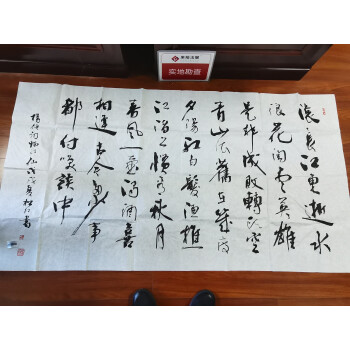 实地勘查
滚长江东逝水
浪花淘尽英雄
是非成败转头空
青山依旧在几度
夕陽红白髮渔樵
江渚上惯看秋月
春风一壶浊酒喜
相逢古今多少事
都付笑谈中
杨慎词临江仙戊戌夏